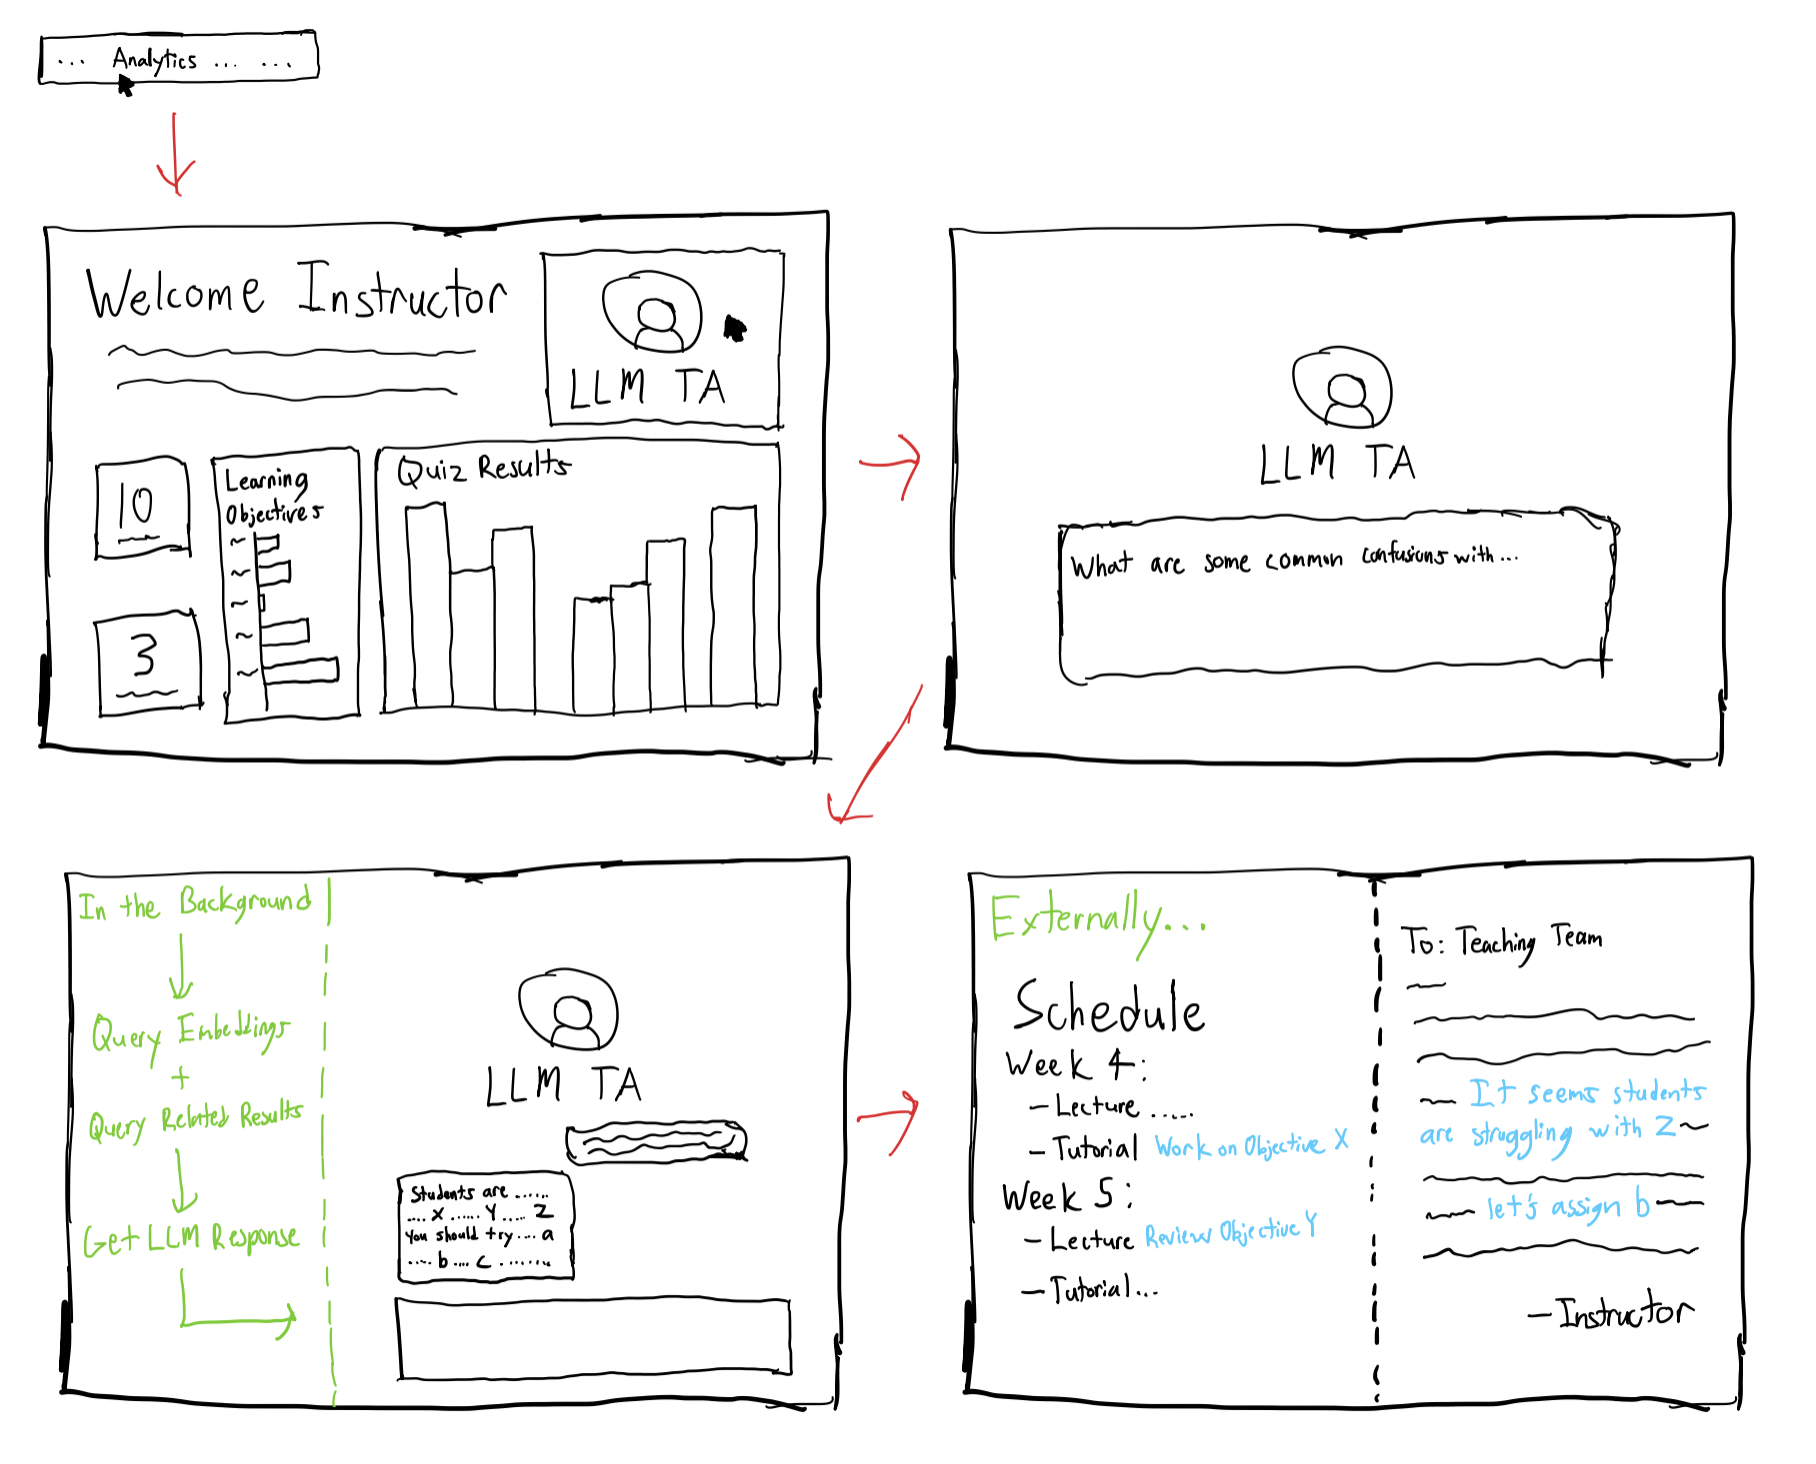 ... Analytics ... ...
Welcome Instructor
LLM TA
10
3
Learning
Objectives
Quiz Results
LLM TA
What are some common confusions with...
In the Background
Query Embeddings
+
Query Related Results
Get LLM Response
LLM TA
Students are ......
.... X ...... Y ..... Z
You should try .... a
..... b .... c ........
Externally...
Schedule
Week 4:
- Lecture .....
- Tutorial Work on Objective X
Week 5:
- Lecture Review Objective Y
- Tutorial...
To: Teaching Team
It seems students
are struggling with Z
let's assign b
- Instructor